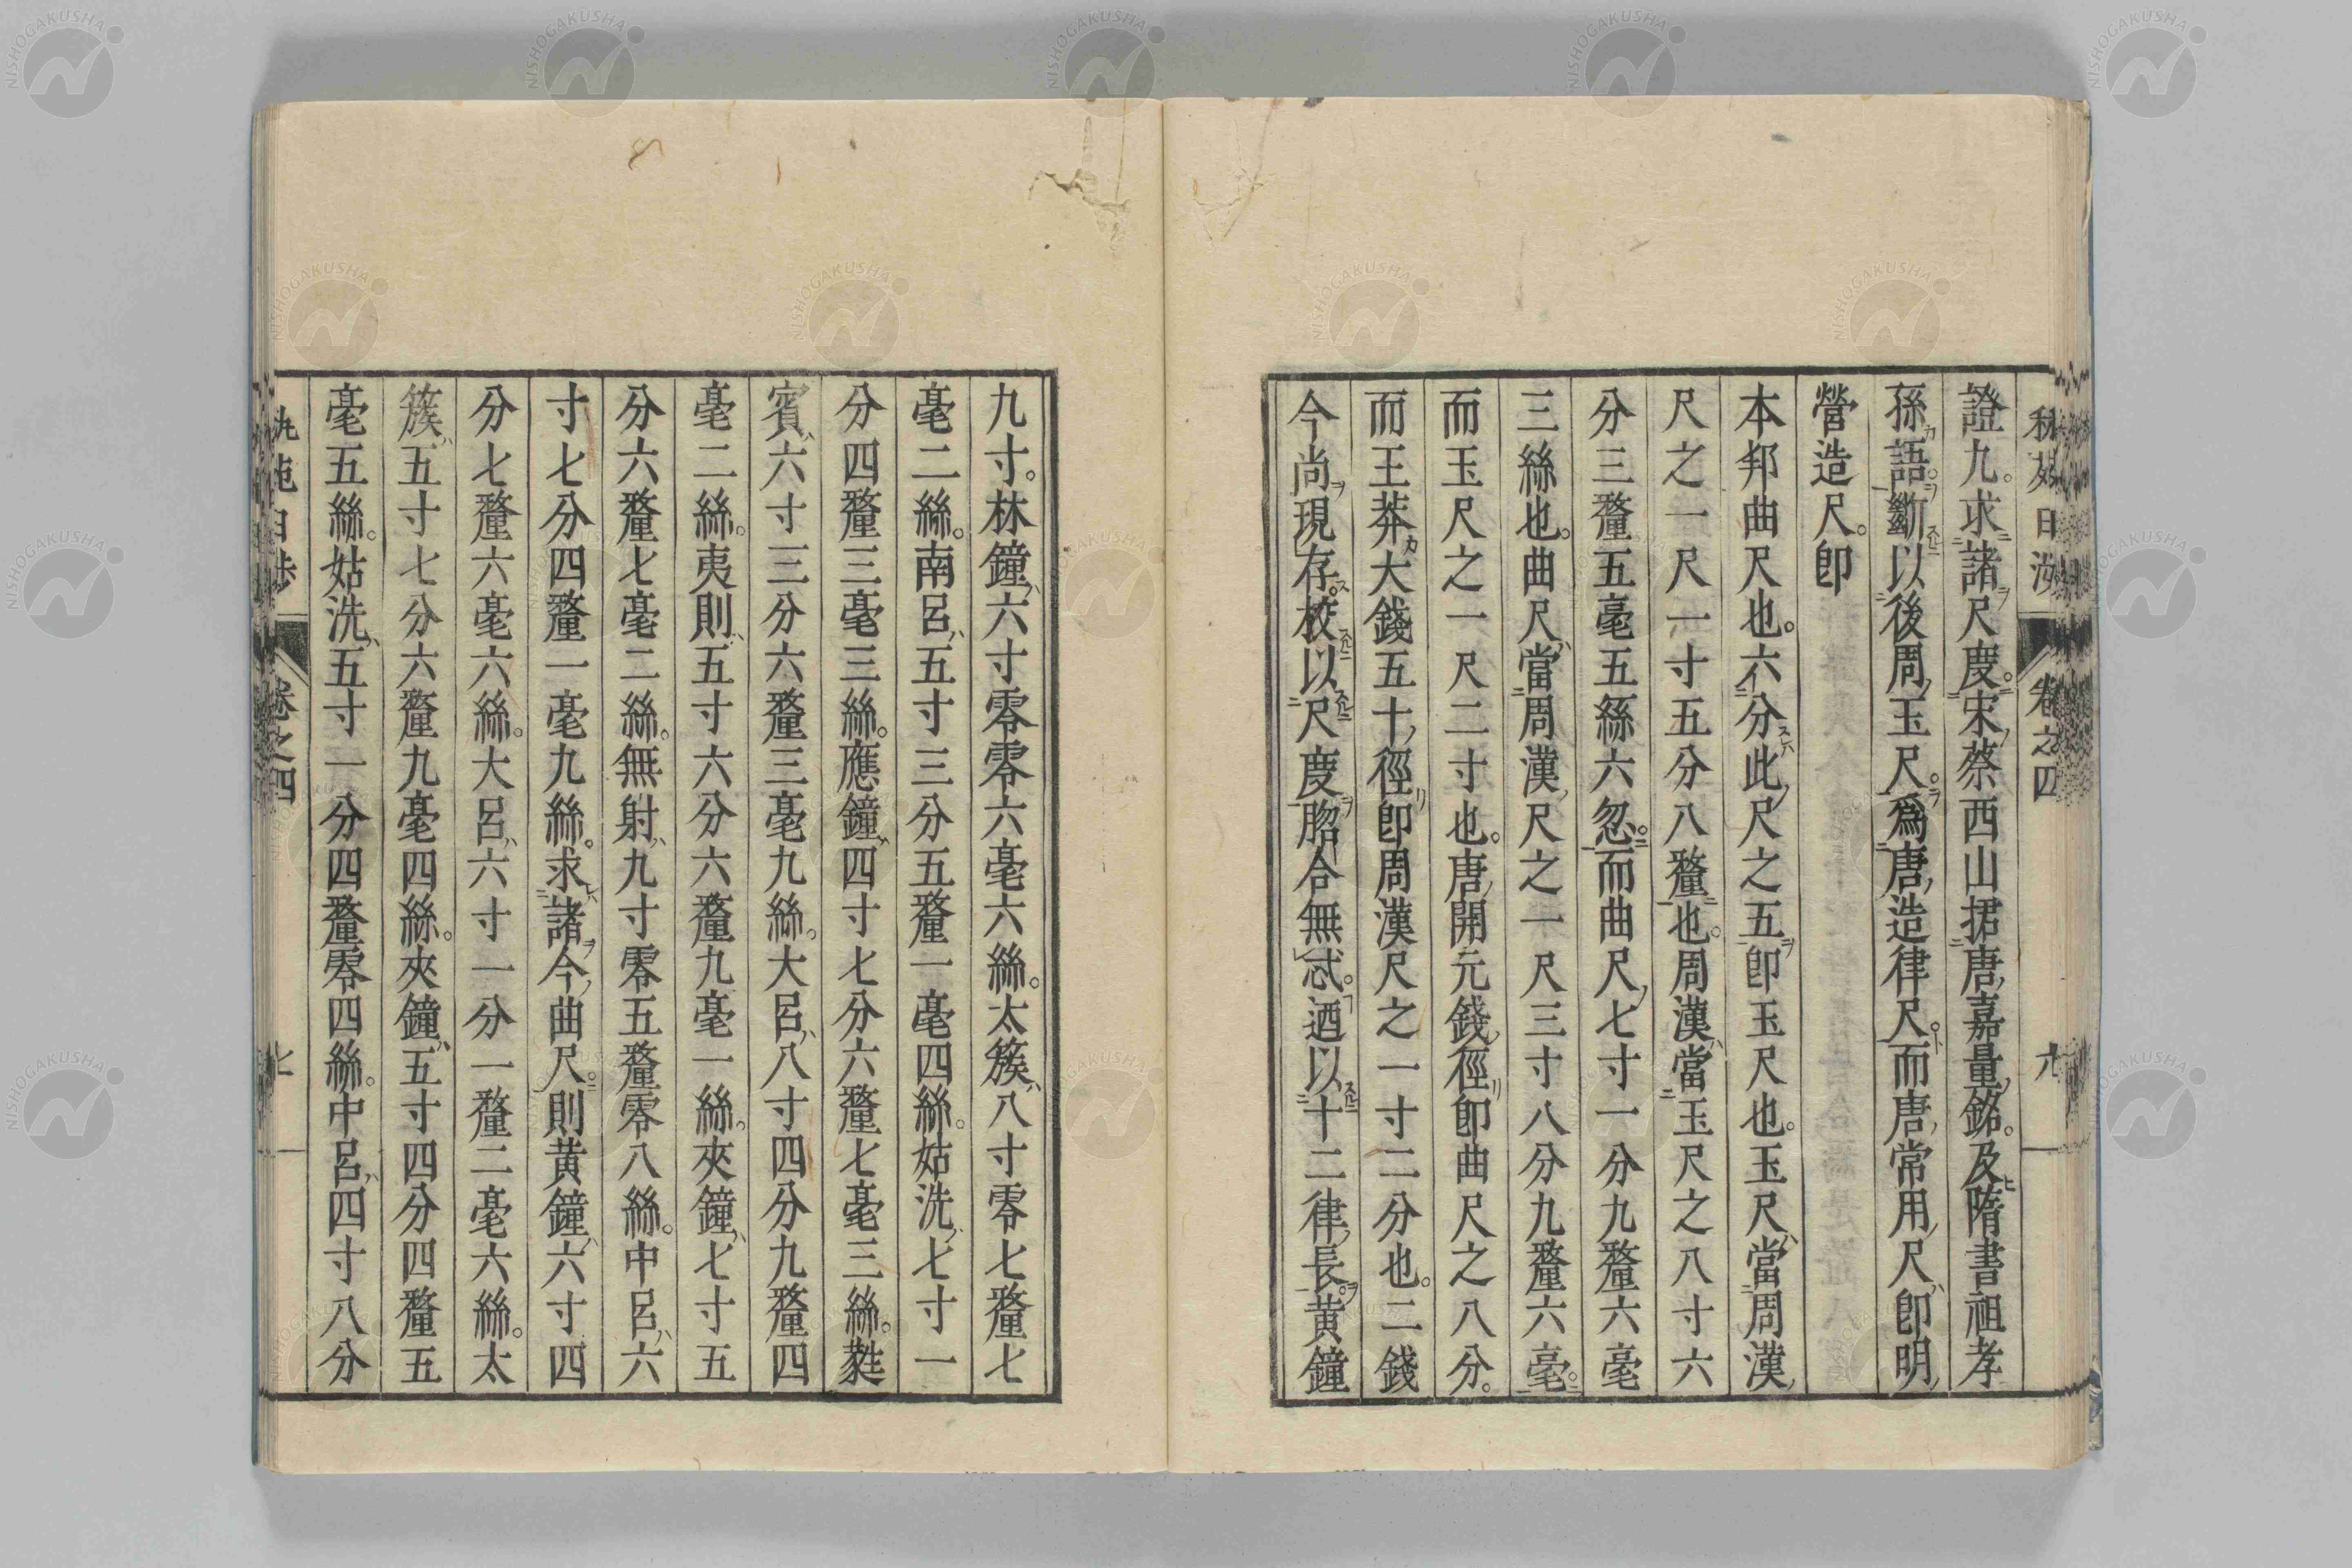 秇苑日渉 卷之四 九
證九。求諸尺度。宋蔡西山捃唐嘉量銘。及隋書祖孝
孫語。斷以後周玉尺。爲唐造律尺。而唐常用尺卽明
營造尺。卽
本邦曲尺也。六分此尺之五卽玉尺也。玉尺當周漢
尺之一尺一寸五分八釐也。周漢當玉尺之八寸六
分三釐五毫五絲六忽。而曲尺七寸一分九釐六毫
三絲也。曲尺當周漢尺之一尺三寸八分九釐六毫。
而玉尺之一尺二寸也。唐開元錢徑卽曲尺之八分。
而王莽大錢五十徑卽周漢尺之一寸二分也。二錢
今尚現存。校以尺度脗合無忒。迺以十二律長。黃鐘
九寸。林鐘六寸零零六毫六絲。太簇八寸零七釐七
毫二絲。南呂五寸三分五釐一毫四絲。姑洗七寸一
分四釐三毫三絲。應鐘四寸七分六釐七毫三絲。蕤
賓六寸三分六釐三毫九絲。大呂八寸四分九釐四
毫二絲。夷則五寸六分六釐九毫一絲。夾鐘七寸五
分六釐七毫二絲。無射九寸零五釐零八絲。中呂六
寸七分四釐一毫九絲。求諸今曲尺。則黃鐘六寸四
分七釐六毫六絲。大呂六寸一分一釐二毫六絲。太
簇五寸七分六釐九毫四絲。夾鐘五寸四分四釐五
毫五絲。姑洗五寸一分四釐零四絲。中呂四寸八分
卷之四